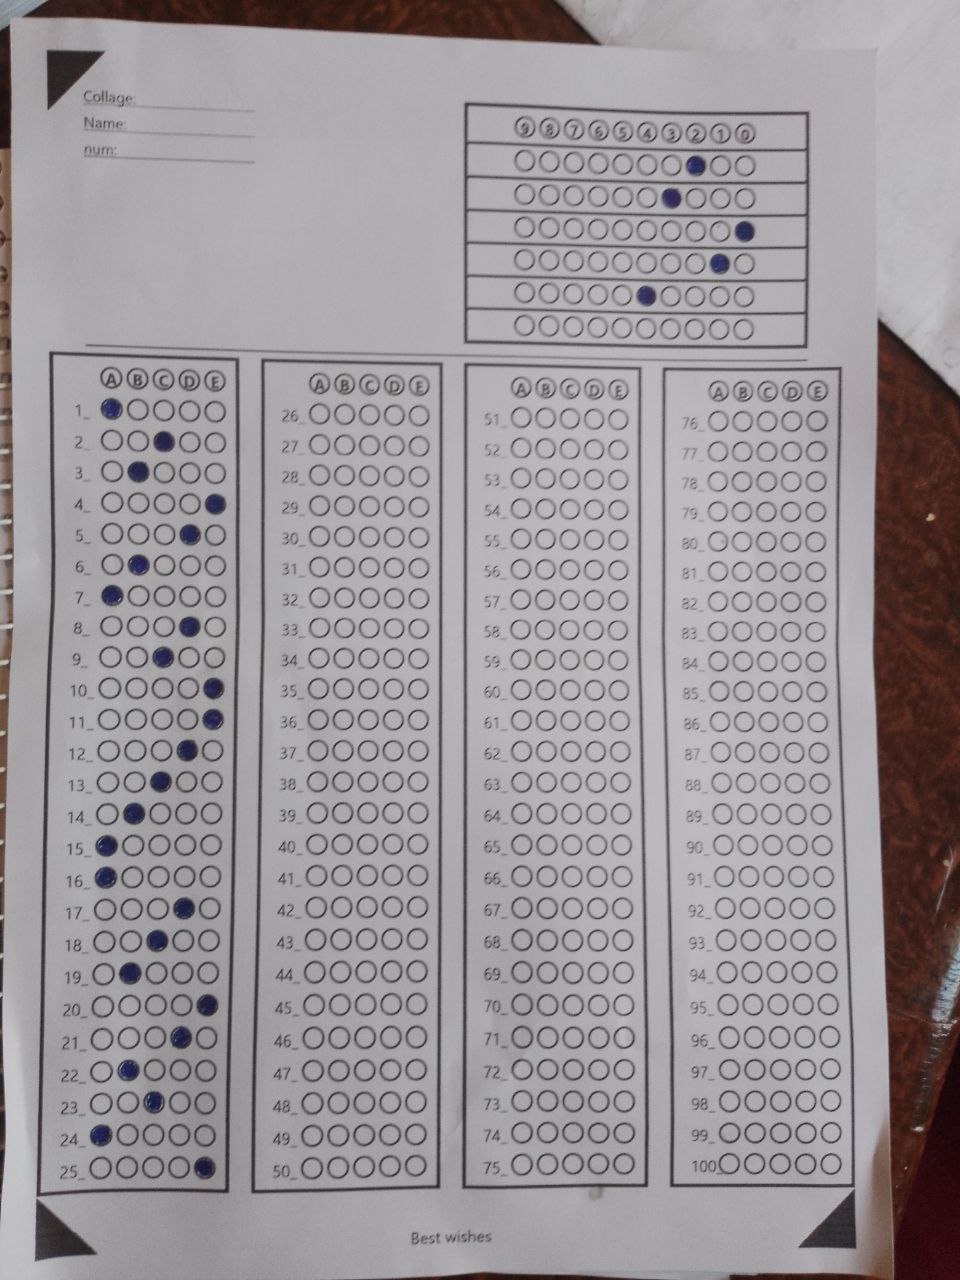 Collage:
Name:
num:
9 8 7 6 5 4 3 2 1 0
A B C D E
1_
2_
3_
4_
5_
6_
7_
8_
9_
10_
11_
12_
13_
14_
15_
16_
17_
18_
19_
20_
21_
22_
23_
24_
25_
A B C D E
26_
27_
28_
29_
30_
31_
32_
33_
34_
35_
36_
37_
38_
39_
40_
41_
42_
43_
44_
45_
46_
47_
48_
49_
50_
A B C D E
51_
52_
53_
54_
55_
56_
57_
58_
59_
60_
61_
62_
63_
64_
65_
66_
67_
68_
69_
70_
71_
72_
73_
74_
75_
A B C D E
76_
77_
78_
79_
80_
81_
82_
83_
84_
85_
86_
87_
88_
89_
90_
91_
92_
93_
94_
95_
96_
97_
98_
99_
100_
Best wishes